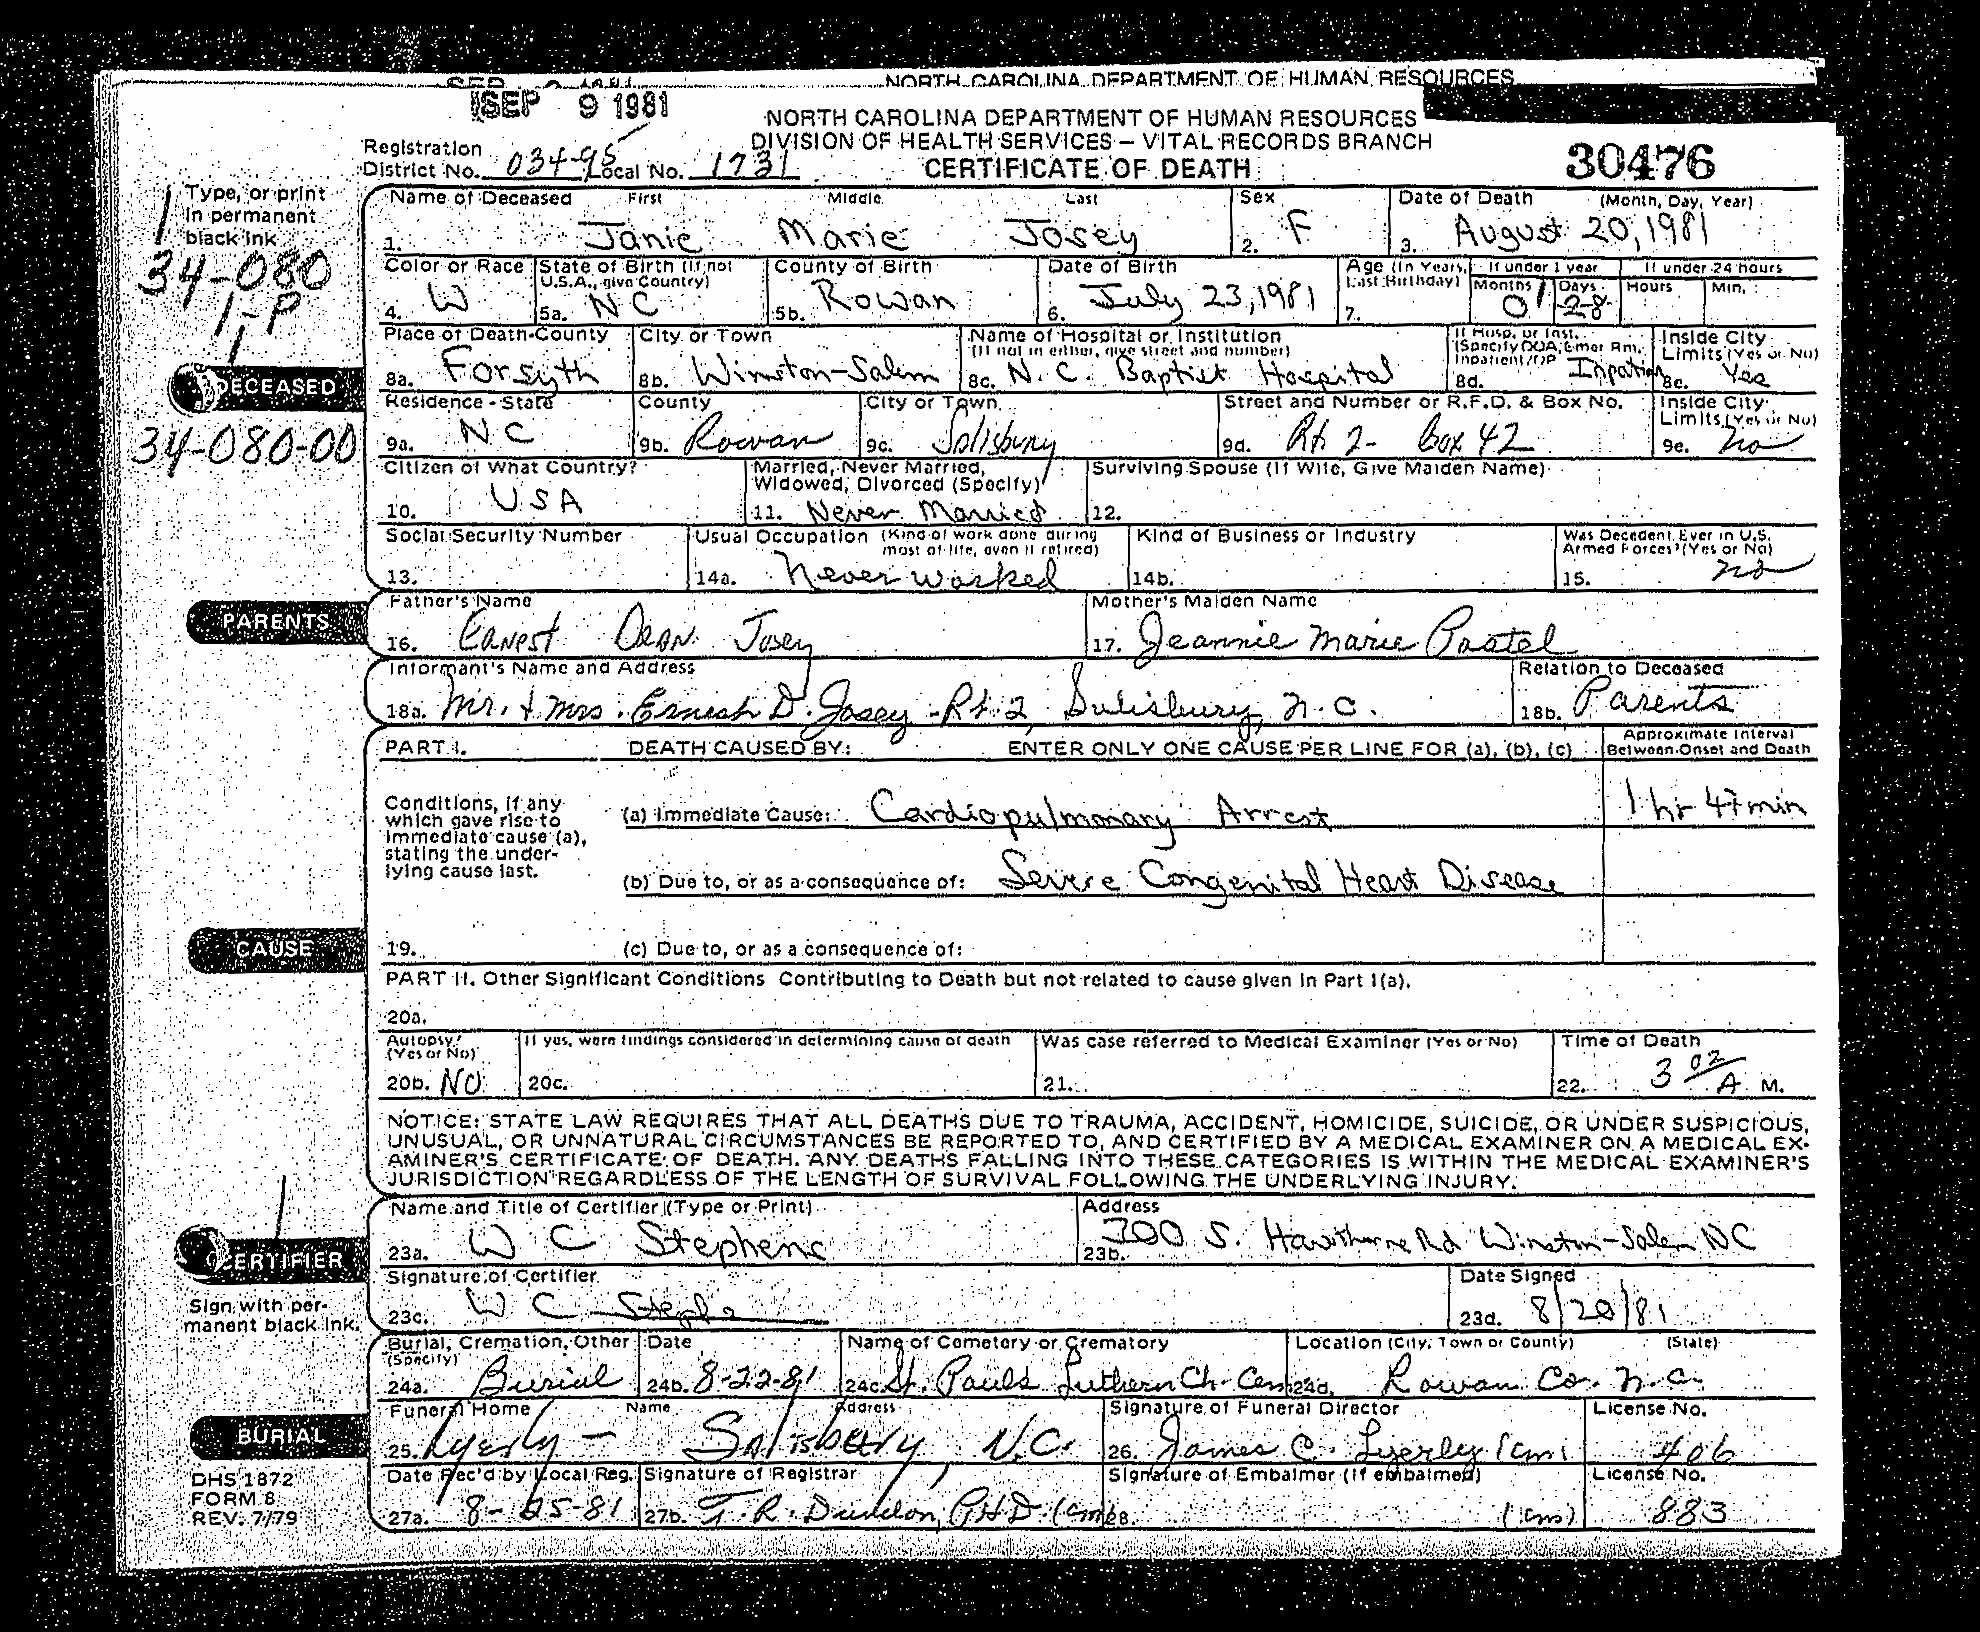 SEP 9 1981
NORTH CAROLINA DEPARTMENT OF HUMAN RESOURCES
SEP 9 1981
NORTH CAROLINA DEPARTMENT OF HUMAN RESOURCES
DIVISION OF HEALTH SERVICES – VITAL RECORDS BRANCH
CERTIFICATE OF DEATH
30476
Registration
District No. 034-95 Local No. 1731
Type, or print
in permanent
black ink
34-080
1-P
1
DECEASED
34-080-00
Name of Deceased First Middle Last Sex Date of Death (Month, Day, Year)
1. Janie Marie Josey 2. F 3. August 20, 1981
Color or Race State of Birth (If not U.S.A., give Country) County of Birth Date of Birth Age (In Years, Last Birthday) If under 1 year If under 24 hours
Months Days Hours Min.
4. W 5a. NC 5b. Rowan 6. July 23, 1981 7. 0 28
Place of Death-County City or Town Name of Hospital or Institution (If not in either, give street and number) If Hosp. or Inst. (Specify DOA, Emer Rm, Inpatient/OP Inside City Limits (Yes or No)
8a. Forsyth 8b. Winston-Salem 8c. N.C. Baptist Hospital 8d. Inpatient 8e. Yes
Residence - State County City or Town Street and Number or R.F.D. & Box No. Inside City Limits (Yes or No)
9a. NC 9b. Rowan 9c. Salisbury 9d. Rt 2- Box 42 9e. no
Citizen of What Country? Married, Never Married, Widowed, Divorced (Specify) Surviving Spouse (If Wife, Give Maiden Name)
10. USA 11. Never Married 12.
Social Security Number Usual Occupation (Kind of work done during most of life, even if retired) Kind of Business or Industry Was Decedent Ever in U.S. Armed Forces? (Yes or No)
13. 14a. Never worked 14b. 15. no
PARENTS
Father's Name Mother's Maiden Name
16. Ernest Dean Josey 17. Jeannie Marie Postel
Informant's Name and Address Relation to Deceased
18a. Mr. + Mrs. Ernest D. Josey - Rt. 2, Salisbury, N.C. 18b. Parents
PART I. DEATH CAUSED BY: ENTER ONLY ONE CAUSE PER LINE FOR (a), (b), (c) Approximate Interval Between Onset and Death
Conditions, if any
which gave rise to
immediate cause (a),
stating the under-
lying cause last.
(a) Immediate Cause: Cardiopulmonary Arrest 1 hr 47 min
(b) Due to, or as a consequence of: Severe Congenital Heart Disease
CAUSE
19. (c) Due to, or as a consequence of:
PART II. Other Significant Conditions Contributing to Death but not related to cause given in Part I(a).
20a.
Autopsy? (Yes or No) If yes, were findings considered in determining cause of death Was case referred to Medical Examiner (Yes or No) Time of Death
20b. NO 20c. 21. 22. 3 02 A M.
NOTICE: STATE LAW REQUIRES THAT ALL DEATHS DUE TO TRAUMA, ACCIDENT, HOMICIDE, SUICIDE, OR UNDER SUSPICIOUS,
UNUSUAL, OR UNNATURAL CIRCUMSTANCES BE REPORTED TO, AND CERTIFIED BY A MEDICAL EXAMINER ON A MEDICAL EX-
AMINER'S CERTIFICATE OF DEATH. ANY DEATHS FALLING INTO THESE CATEGORIES IS WITHIN THE MEDICAL EXAMINER'S
JURISDICTION REGARDLESS OF THE LENGTH OF SURVIVAL FOLLOWING THE UNDERLYING INJURY.
CERTIFIER
Name and Title of Certifier (Type or Print) Address
23a. W C Stephens 23b. 300 S. Hawthorne Rd Winston-Salem NC
Signature of Certifier Date Signed
Sign with per-
manent black ink.
23c. W C Stephens 23d. 8/20/81
Burial, Cremation, Other (Specify) Date Name of Cemetery or Crematory Location (City, Town or County) (State)
24a. Burial 24b. 8-22-81 24c. St. Pauls Luthern Ch. Cem 24d. Rowan Co. N.C.
BURIAL
Funeral Home Name Address Signature of Funeral Director License No.
25. Lyerly - Salisbury, N.C. 26. James C. Lyerly (cm) 406
Date Rec'd by Local Reg. Signature of Registrar Signature of Embalmer (If embalmed) License No.
27a. 8-25-81 27b. T.R. PHD. (cm) 28. (cm) 883
DHS 1872
FORM 8
REV. 7/79